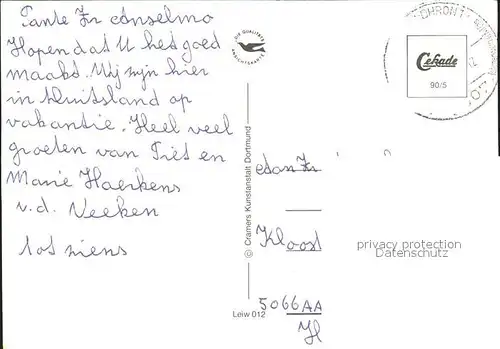 Tante Zr Anselmo
Hopen dat U het goed
maakt. Wij zijn hier
in Duitsland op
vakantie. Heel veel
groeten van Piet en
Marie Haerkens
v.d. Neeken
tot ziens
DIE QUALITÄTS
ANSICHTSKARTE
© Cramers Kunstanstalt Dortmund
Leiw 012
Cekade
90/5
Aan Zr
Kloost
privacy protection
Datenschutz
5066AA
H